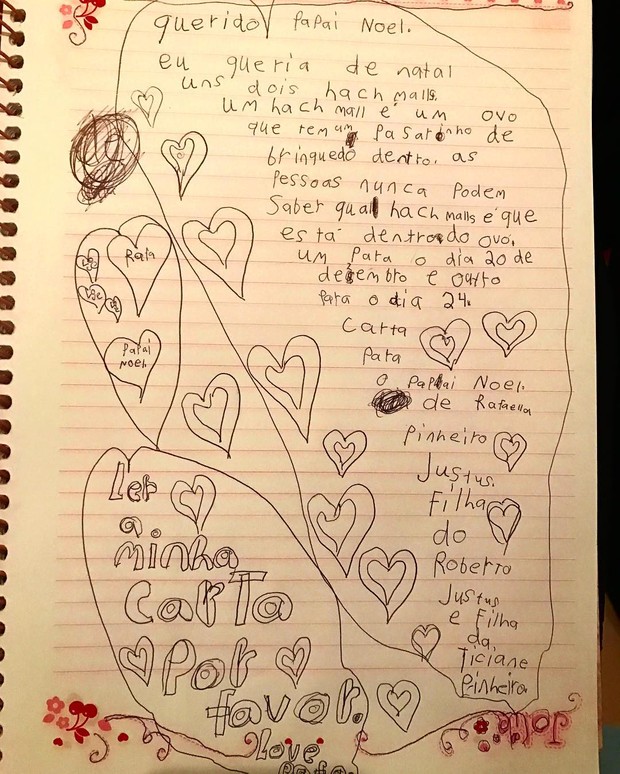 querido Papai Noel.
eu queria de natal
uns dois hach malls.
um hach mall é um ovo
que tem um Pasarinho de
brinquedo dentro. as
Pessoas nunca Podem
Saber qual hach malls é que
está dentro do ovo.
um Para o dia 20 de
dezembro e outro
Para o dia 24.
Carta
Para
o Papai Noel.
de Rafaella
Pinheiro
Justus.
Filha
do
Roberto
Justus
e Filha
da
Ticiane
Pinheiro
Rafa
Papai
Noel
Ler
a
minha
Carta
Por
favor.
Love
Rafa